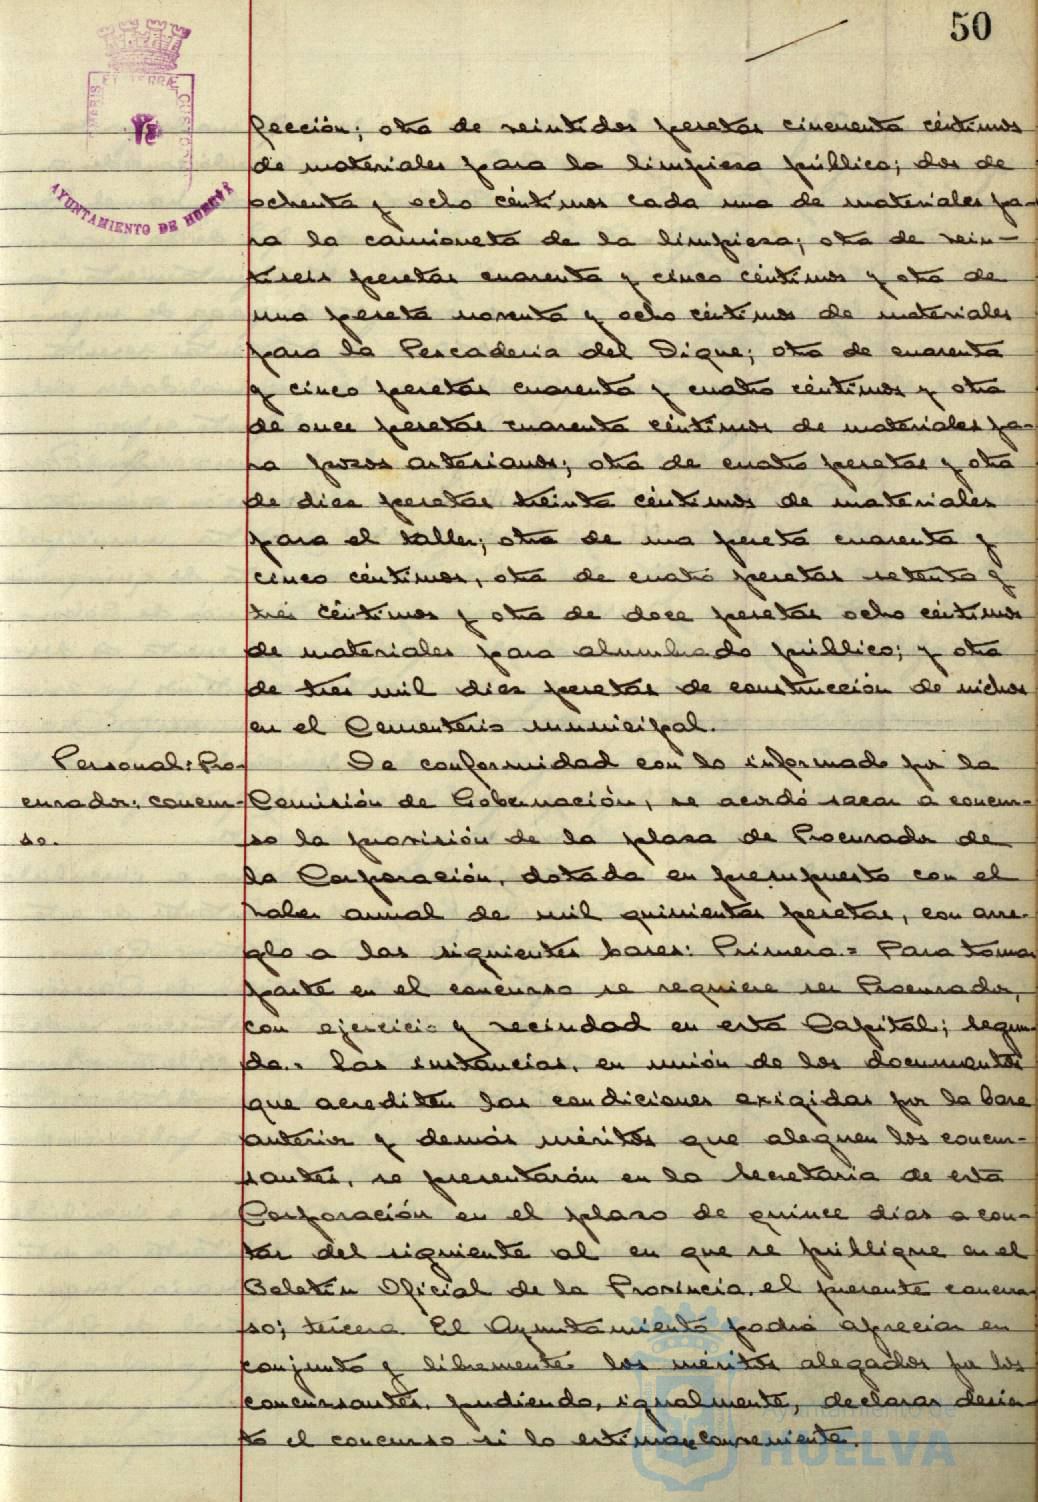 50
AYUNTAMIENTO DE HUELVA
pección; otra de veintidos pesetas cincuenta céntimos
de materiales para la limpieza pública; dos de
ochenta y ocho céntimos cada una de materiales pa-
ra la camioneta de la limpieza; otra de vein-
tiseis pesetas cuarenta y cinco céntimos y otra de
una peseta noventa y ocho céntimos de materiales
para la Pescaderia del Dique; otra de cuarenta
y cinco pesetas cuarenta y cuatro céntimos y otra
de once pesetas cuarenta céntimos de materiales pa-
ra pozos artesianos; otra de cuatro pesetas y otra
de diez pesetas treinta céntimos de materiales
para el taller; otra de una peseta cuarenta y
cinco céntimos, otra de cuatro pesetas setenta y
tres céntimos y otra de doce pesetas ocho céntimos
de materiales para alumbrado público; y otra
de tres mil diez pesetas de construcción de nichos
en el Cementerio municipal.
Personal: Pro-
curador: concur-
so.
De conformidad con lo informado por la
Comisión de Gobernación, se acordó sacar a concur-
so la provisión de la plaza de Procurador de
la Corporación, dotada en presupuesto con el
haber anual de mil quinientas pesetas, con arre-
glo a las siguientes bases: Primera.= Para tomar
parte en el concurso se requiere ser Procurador,
con ejercicio y vecindad en esta Capital; segun-
da.- Las instancias, en unión de los documentos
que acrediten las condiciones exigidas por la base
anterior y demás méritos que aleguen los concur-
santes, se presentarán en la Secretaria de esta
Corporación en el plazo de quince dias a con-
tar del siguiente al en que se publique en el
Boletin Oficial de la Provincia, el presente concur-
so; tercera. El Ayuntamiento podrá apreciar en
conjunto y libremente los méritos alegados por los
concursantes, pudiendo, igualmente, declarar desier-
to el concurso si lo estima conveniente.
Ayuntamiento de
HUELVA